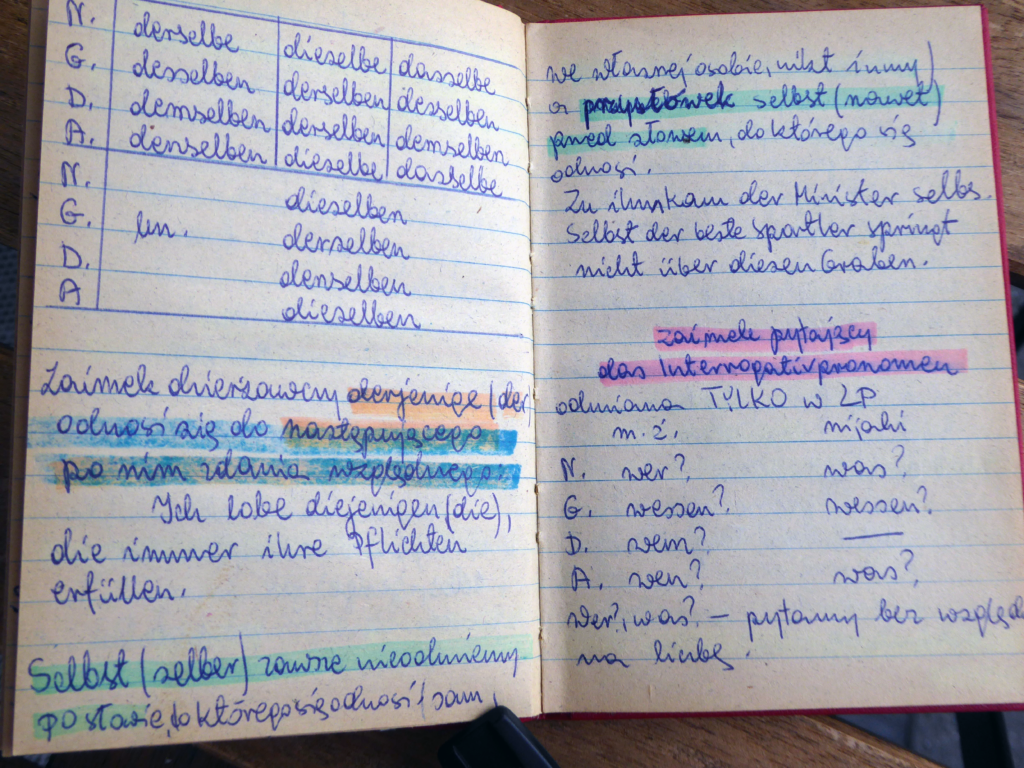 N. derselbe dieselbe dasselbe
G. desselben derselben desselben
D. demselben derselben demselben
A. denselben dieselbe dasselbe
N. dieselben
G. lm. derselben
D. denselben
A dieselben
Zaimek dzierżawczy derjenige (der
odnosi się do następującego
po nim zdania względnego.
Ich lobe diejenigen (die),
die immer ihre Pflichten
erfüllen.
Selbst (selber) zawsze nieodmienny
po słowie, do którego się odnosi (sam,
we własnej osobie, nikt inny)
a przysłówek selbst (nawet)
przed słowem, do którego się
odnosi.
Zu ihm kam der Minister selbs.
Selbst der beste Sportler springt
nicht über diesen Graben.
zaimek pytajacy
das Interrogativpronomen
odmiana TYLKO w LP
m. ż. nijaki
N. wer? was?
G. wessen? wessen?
D. wem? —
A. wen? was?
wer?, was? – pytamy bez względu
na liczbę.